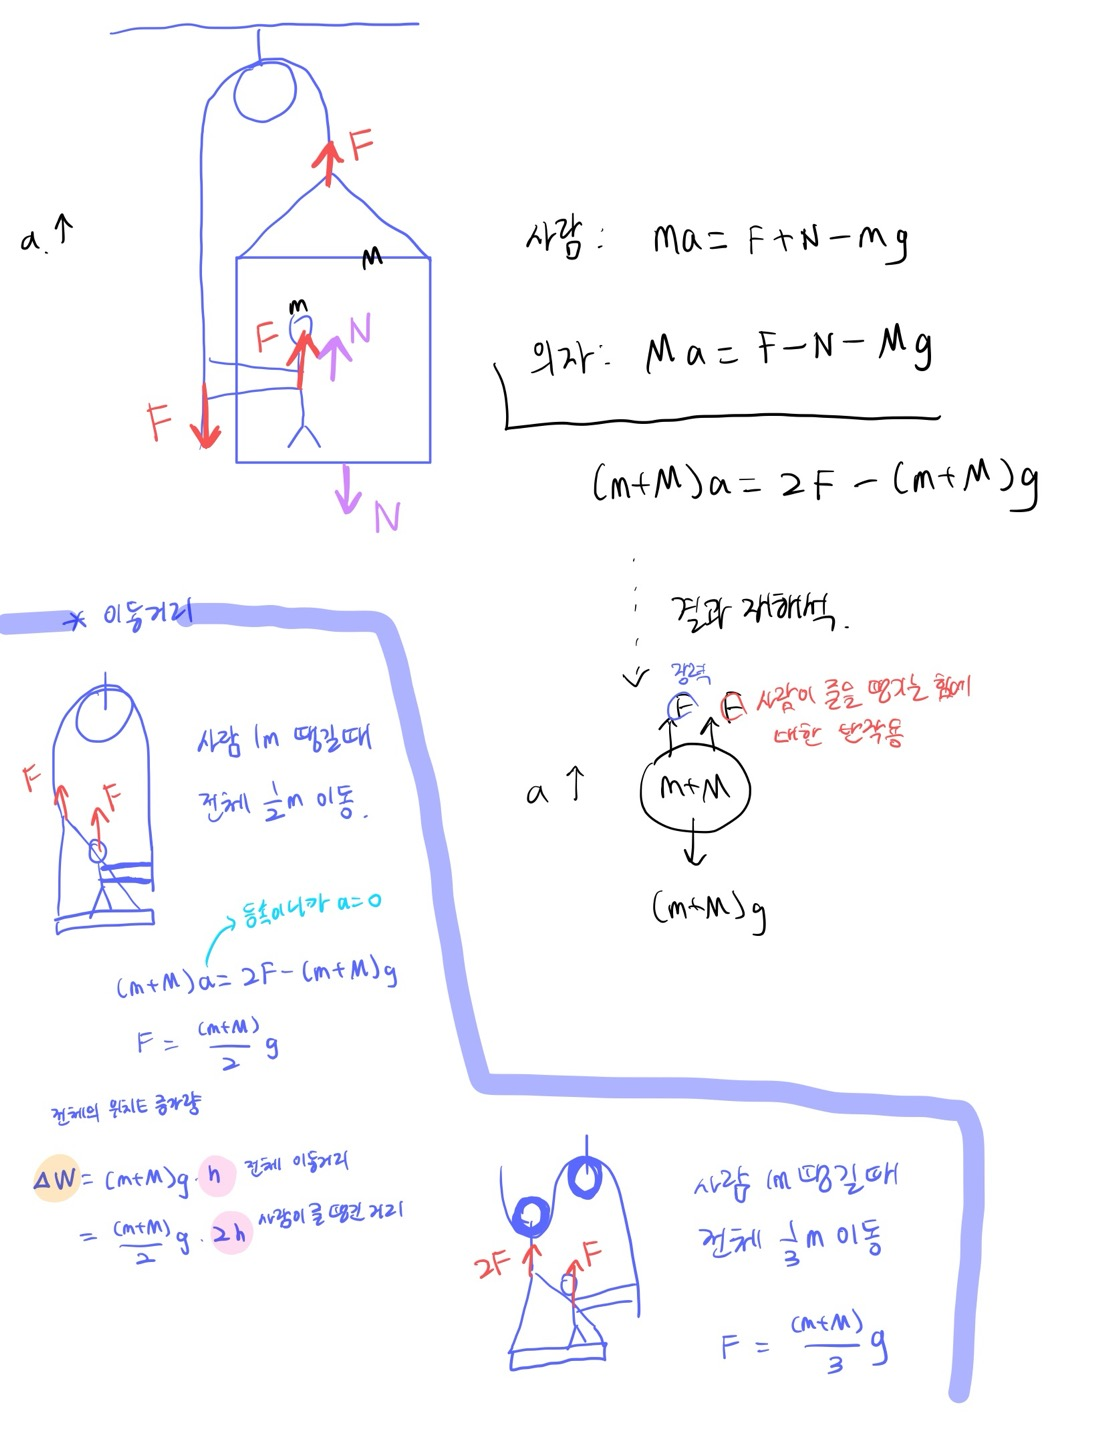 F
a.↑
M
m
F
N
F
N
사람: ma = F+N-mg
의자: Ma = F-N-Mg
(m+M)a = 2F-(m+M)g
결과 재해석.
장력
F
F
사람이 줄을 땡기는 힘에
대한 반작용
a ↑
m+M
(m+M)g
* 이동거리
F
F
사람 1m 땡길때
전체 1/2 m 이동.
등속이니까 a=0
(m+M)a = 2F-(m+M)g
F = (m+M)/2 g
전체의 위치E 증가량
ΔW = (m+M)g·h 전체 이동거리
= (m+M)/2 g·2h 사람이 줄 땡긴 거리
2F
F
사람 1m 땡길때
전체 1/3 m 이동
F = (m+M)/3 g